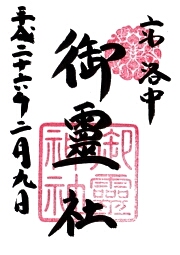 京都洛中
御靈社
御靈神社
平成二十六年二月九日